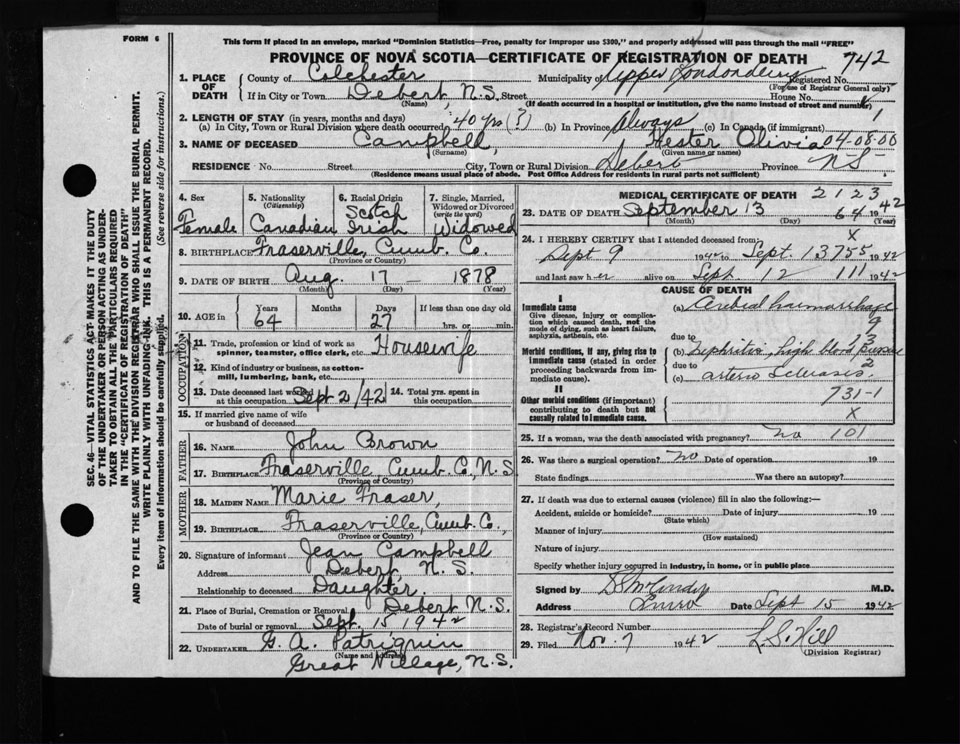 FORM 6
This form if placed in an envelope, marked "Dominion Statistics—Free, penalty for improper use $300," and properly addressed will pass through the mail "FREE"
PROVINCE OF NOVA SCOTIA—CERTIFICATE OF REGISTRATION OF DEATH
742
1. PLACE OF DEATH
County of Colchester Municipality of Upper Londonderry Registered No.
(For use of Registrar General only)
If in City or Town Debert, N.S. Street House No.
(Name) (If death occurred in a hospital or institution, give the name instead of street and number)
2. LENGTH OF STAY (in years, months and days) 1
(a) In City, Town or Rural Division where death occurred 40 yrs (3) (b) In Province Always (c) In Canada (if immigrant)
3. NAME OF DECEASED Campbell, Hester Olivia 04-08-00
(Surname) (Given name or names)
RESIDENCE No. Street City, Town or Rural Division Debert Province N S
(Residence means usual place of abode. Post Office Address for residents in rural parts not sufficient)
4. Sex
Female
5. Nationality
(Citizenship)
Canadian
6. Racial Origin
Scotch
Irish
7. Single, Married, Widowed or Divorced
(write the word)
Widowed
8. BIRTHPLACE Fraserville, Cumb. Co.
(Province or Country)
9. DATE OF BIRTH Aug. 17 1878
(Month) (Day) (Year)
10. AGE in
Years Months Days If less than one day old
64 27 hrs. or min.
OCCUPATION
11. Trade, profession or kind of work as spinner, teamster, office clerk, etc. Housewife
12. Kind of industry or business, as cotton-mill, lumbering, bank, etc.
13. Date deceased last worked at this occupation Sept 2/42
14. Total yrs. spent in this occupation
15. If married give name of wife or husband of deceased
FATHER
16. NAME John Brown
17. BIRTHPLACE Fraserville, Cumb. C, N.S.
(Province or Country)
MOTHER
18. MAIDEN NAME Marie Fraser,
19. BIRTHPLACE Fraserville, Cumb. Co.,
(Province or Country)
20. Signature of informant Jean Campbell
Address Debert, N. S.
Relationship to deceased Daughter.
21. Place of Burial, Cremation or Removal Debert N.S.
Date of burial or removal Sept. 15 1942
22. UNDERTAKER G. A. Patriquin
(Name and Address)
Great Village, N.S.
MEDICAL CERTIFICATE OF DEATH 2123
23. DATE OF DEATH September 13 64 1942
(Month) (Day) (Year)
X
24. I HEREBY CERTIFY that I attended deceased from:
Sept 9 1942 to Sept. 13 755 1942
and last saw her alive on Sept 12 111 1942
CAUSE OF DEATH
I
Immediate cause
Give disease, injury or complication which caused death, not the mode of dying, such as heart failure, asphyxia, asthenia, etc.
(a)
9
due to 3
Morbid conditions, if any, giving rise to immediate cause (stated in order proceeding backwards from immediate cause).
(b) Nephritis, high blood
due to 2
(c) arterio
II
Other morbid conditions (if important) contributing to death but not causally related to immediate cause.
731-1
X
25. If a woman, was the death associated with pregnancy? no 101
26. Was there a surgical operation? no Date of operation 19
State findings Was there an autopsy?
27. If death was due to external causes (violence) fill in also the following:—
Accident, suicide or homicide? Date of injury 19
(State which)
Manner of injury
(How sustained)
Nature of injury
Specify whether injury occurred in industry, in home, or in public place
Signed by M.D.
Address Truro Date Sept 15 1942
28. Registrar's Record Number
29. Filed Nov. 7 1942 L. S. Hill
(Division Registrar)
SEC. 46—VITAL STATISTICS ACT MAKES IT THE DUTY
OF THE UNDERTAKER OR PERSON ACTING AS UNDERTAKER TO OBTAIN ALL THE PARTICULARS REQUIRED
IN THE "CERTIFICATE OF REGISTRATION OF DEATH"
AND TO FILE THE SAME WITH THE DIVISION REGISTRAR WHO SHALL ISSUE THE BURIAL PERMIT.
WRITE PLAINLY WITH UNFADING INK. THIS IS A PERMANENT RECORD.
Every item of Information should be carefully supplied. (See reverse side for instructions.)